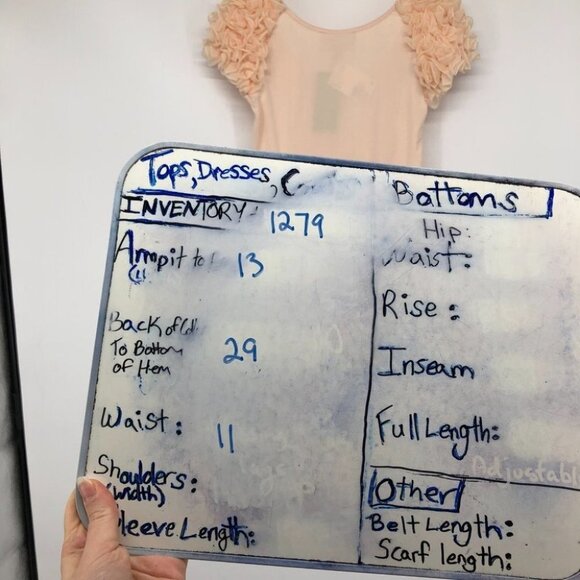 Tops, Dresses,
INVENTORY: 1279
Armpit to 13
Back of
To Bottom
of Hem
29
Waist: 11
Shoulders:
(width)
Sleeve Length:
Bottoms
Hip:
Waist:
Rise:
Inseam
Full Length:
Adjustabl
Other
Belt Length:
Scarf length: